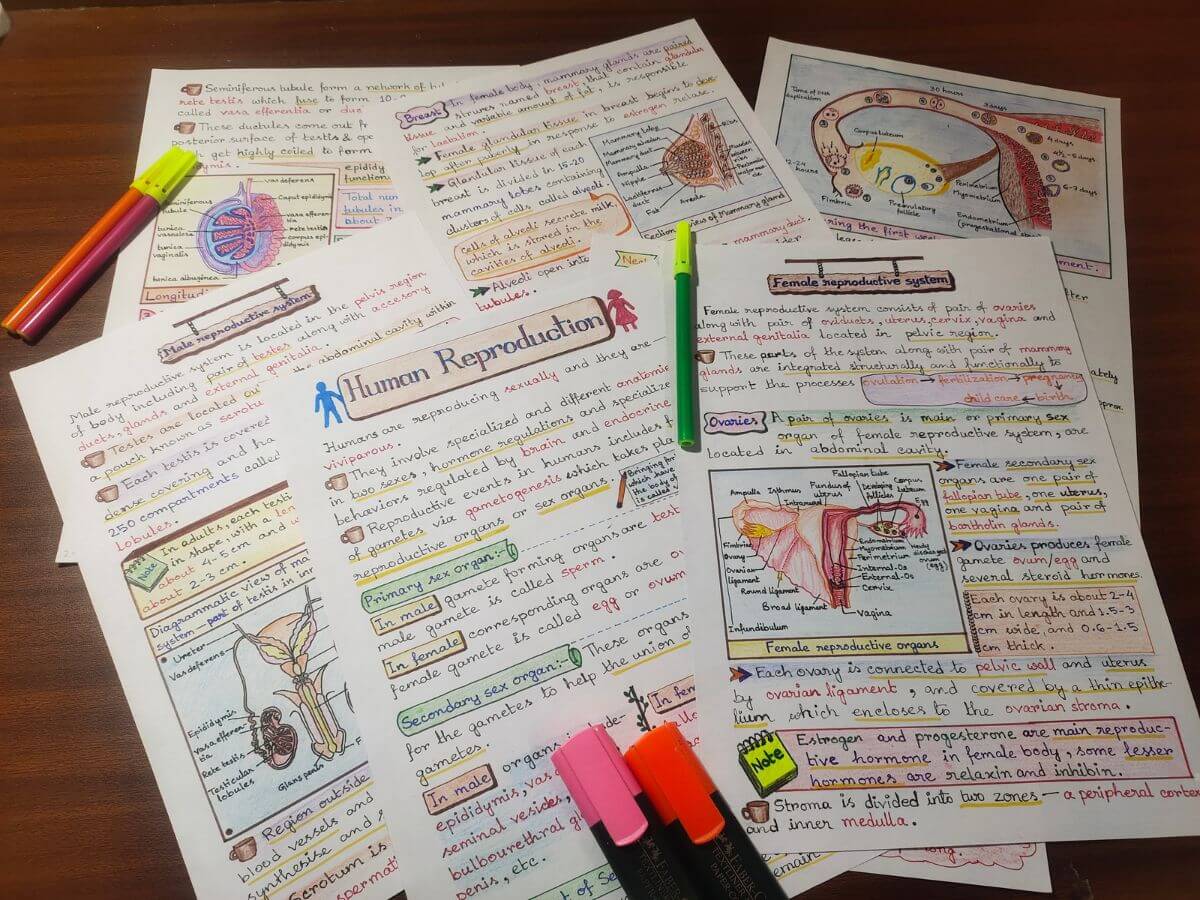 Seminiferous tubule form a network of
rete testis which fuse to form 10-
called vasa efferentia or duc
These ductules come out fr
posterior surface of testis & ope
get highly coiled to form
epididy
function
Total num
tubules in
about
vas deferens
Caput epididymis
Seminiferous
tubule
vasa efferentia
rete testis
tunica
vasculosa
corpus epididymis
tunica
vaginalis
tunica albuginea
Longitudi
Breast
In female body, mammary glands are paired
strures named breast, that contain glandular
tissue and variable amount of fat, is responsible
for lactation.
Female glandular tissue in breast begins to deve-
lop after puberty in response to estrogen relase.
Glandular tissue of each
breast is divided in 15-20
mammary lobes containing
clusters of cells called alveoli
cells of alveoli secrete milk,
which is stored in the
cavities of alveoli.
Alveoli open into
tubules.
mammary duct.
Mammary lobe
Mammary alveolus
Mammary duct
Ampulla
Nipple
Lactiferous
duct
Fat
Areola
Ribs
Muscles
between
ribs
Pectoralis
major muscle
Section view of Mammary gland
Time of DNA
duplication
30 hours
3 days
4 days
4½-5 days
6-7 days
12-24
hours
Corpus luteum
Fimbria
Ovary
Preovulatory
follicle
Perimetrium
Myometrium
Endometrium
(progestational
ring the first wee
ment.
Male reproductive system
Male reproductive system is located in the pelvis region
of body including pair of testes along with accesory
ducts, glands and external genitalia.
Testes are located ou
the abdominal cavity within
a pouch known as scrotu
Each testis is covere
dense covering and ha
250 compartments called
lobules.
Note
In adults, each testi
in shape, with a len
about 4-5 cm and w
about 2-3 cm.
Diagrammatic view of ma
system - part of testis in inn
Ureter
Vas deferens
Epididymis
vasa efferen-
tia
Rete testis
Testicular
lobules
Glans penis
Region outside
blood vessels and
synthesise and s
Scrotum is
spermat
Human Reproduction
Humans are reproducing sexually and they are
viviparous.
They involve specialized and different anatomie
in two sexes, hormone regulations and specialize
behaviors regulated by brain and endocrine
Reproductive events in humans includes f
of gametes via gametogenesis which takes pla
reproductive organs or sex organs.
Bringing for
which have
the body of
is called
Primary sex organ:-
In male gamete forming organs are test
male gamete is called sperm.
In female corresponding organs are ov
female gamete is called egg or ovum
Secondary sex organ:- These organs
for the gametes to help the union o
gametes.
In male organs
epididymis, vas de-
seminal vesicles,
bulbourethral gl
penis, etc.
In fem
Female reproductive system
Female reproductive system consists of pair of ovaries
along with pair of oviducts, uterus, cervix, vagina and
external genitalia located in pelvic region.
These parts of the system along with pair of mammary
glands are integrated structurally and functionally to
support the processes ovulation → fertilization → pregnancy
child care ← birth
Ovaries
A pair of ovaries is main or primary sex
organ of female reproductive system, are
located in abdominal cavity.
Fallopian tube
Ampulla
Isthmus
Fundus of
uterus
Intramural
Developing
follicles
Corpus
luteum
Egg
Fimbriae
Ovary
Ovarian
ligament
Round ligament
Broad ligament
Infundibulum
Endometrium
Myometrium
Perimetrium
Internal-Os
External-Os
Cervix
Vagina
Newly
discharged
ovum
(egg)
Female reproductive organs
Female secondary sex
organs are one pair of
fallopian tube, one uterus,
one vagina and pair of
bartholin glands.
Ovaries produces female
gamete ovum/egg and
several steroid hormones.
Each ovary is about 2-4
cm in length and 1.5-3
cm wide, and 0.6-1.5
cm thick.
Each ovary is connected to pelvic wall and uterus
by ovarian ligament, and covered by a thin epithe-
lium which encloses to the ovarian stroma.
Note
Estrogen and progesterone are main reproduc-
tive hormone in female body, some lesser
hormones are relaxin and inhibin.
Stroma is divided into two zones - a peripheral cortex
and inner medulla.